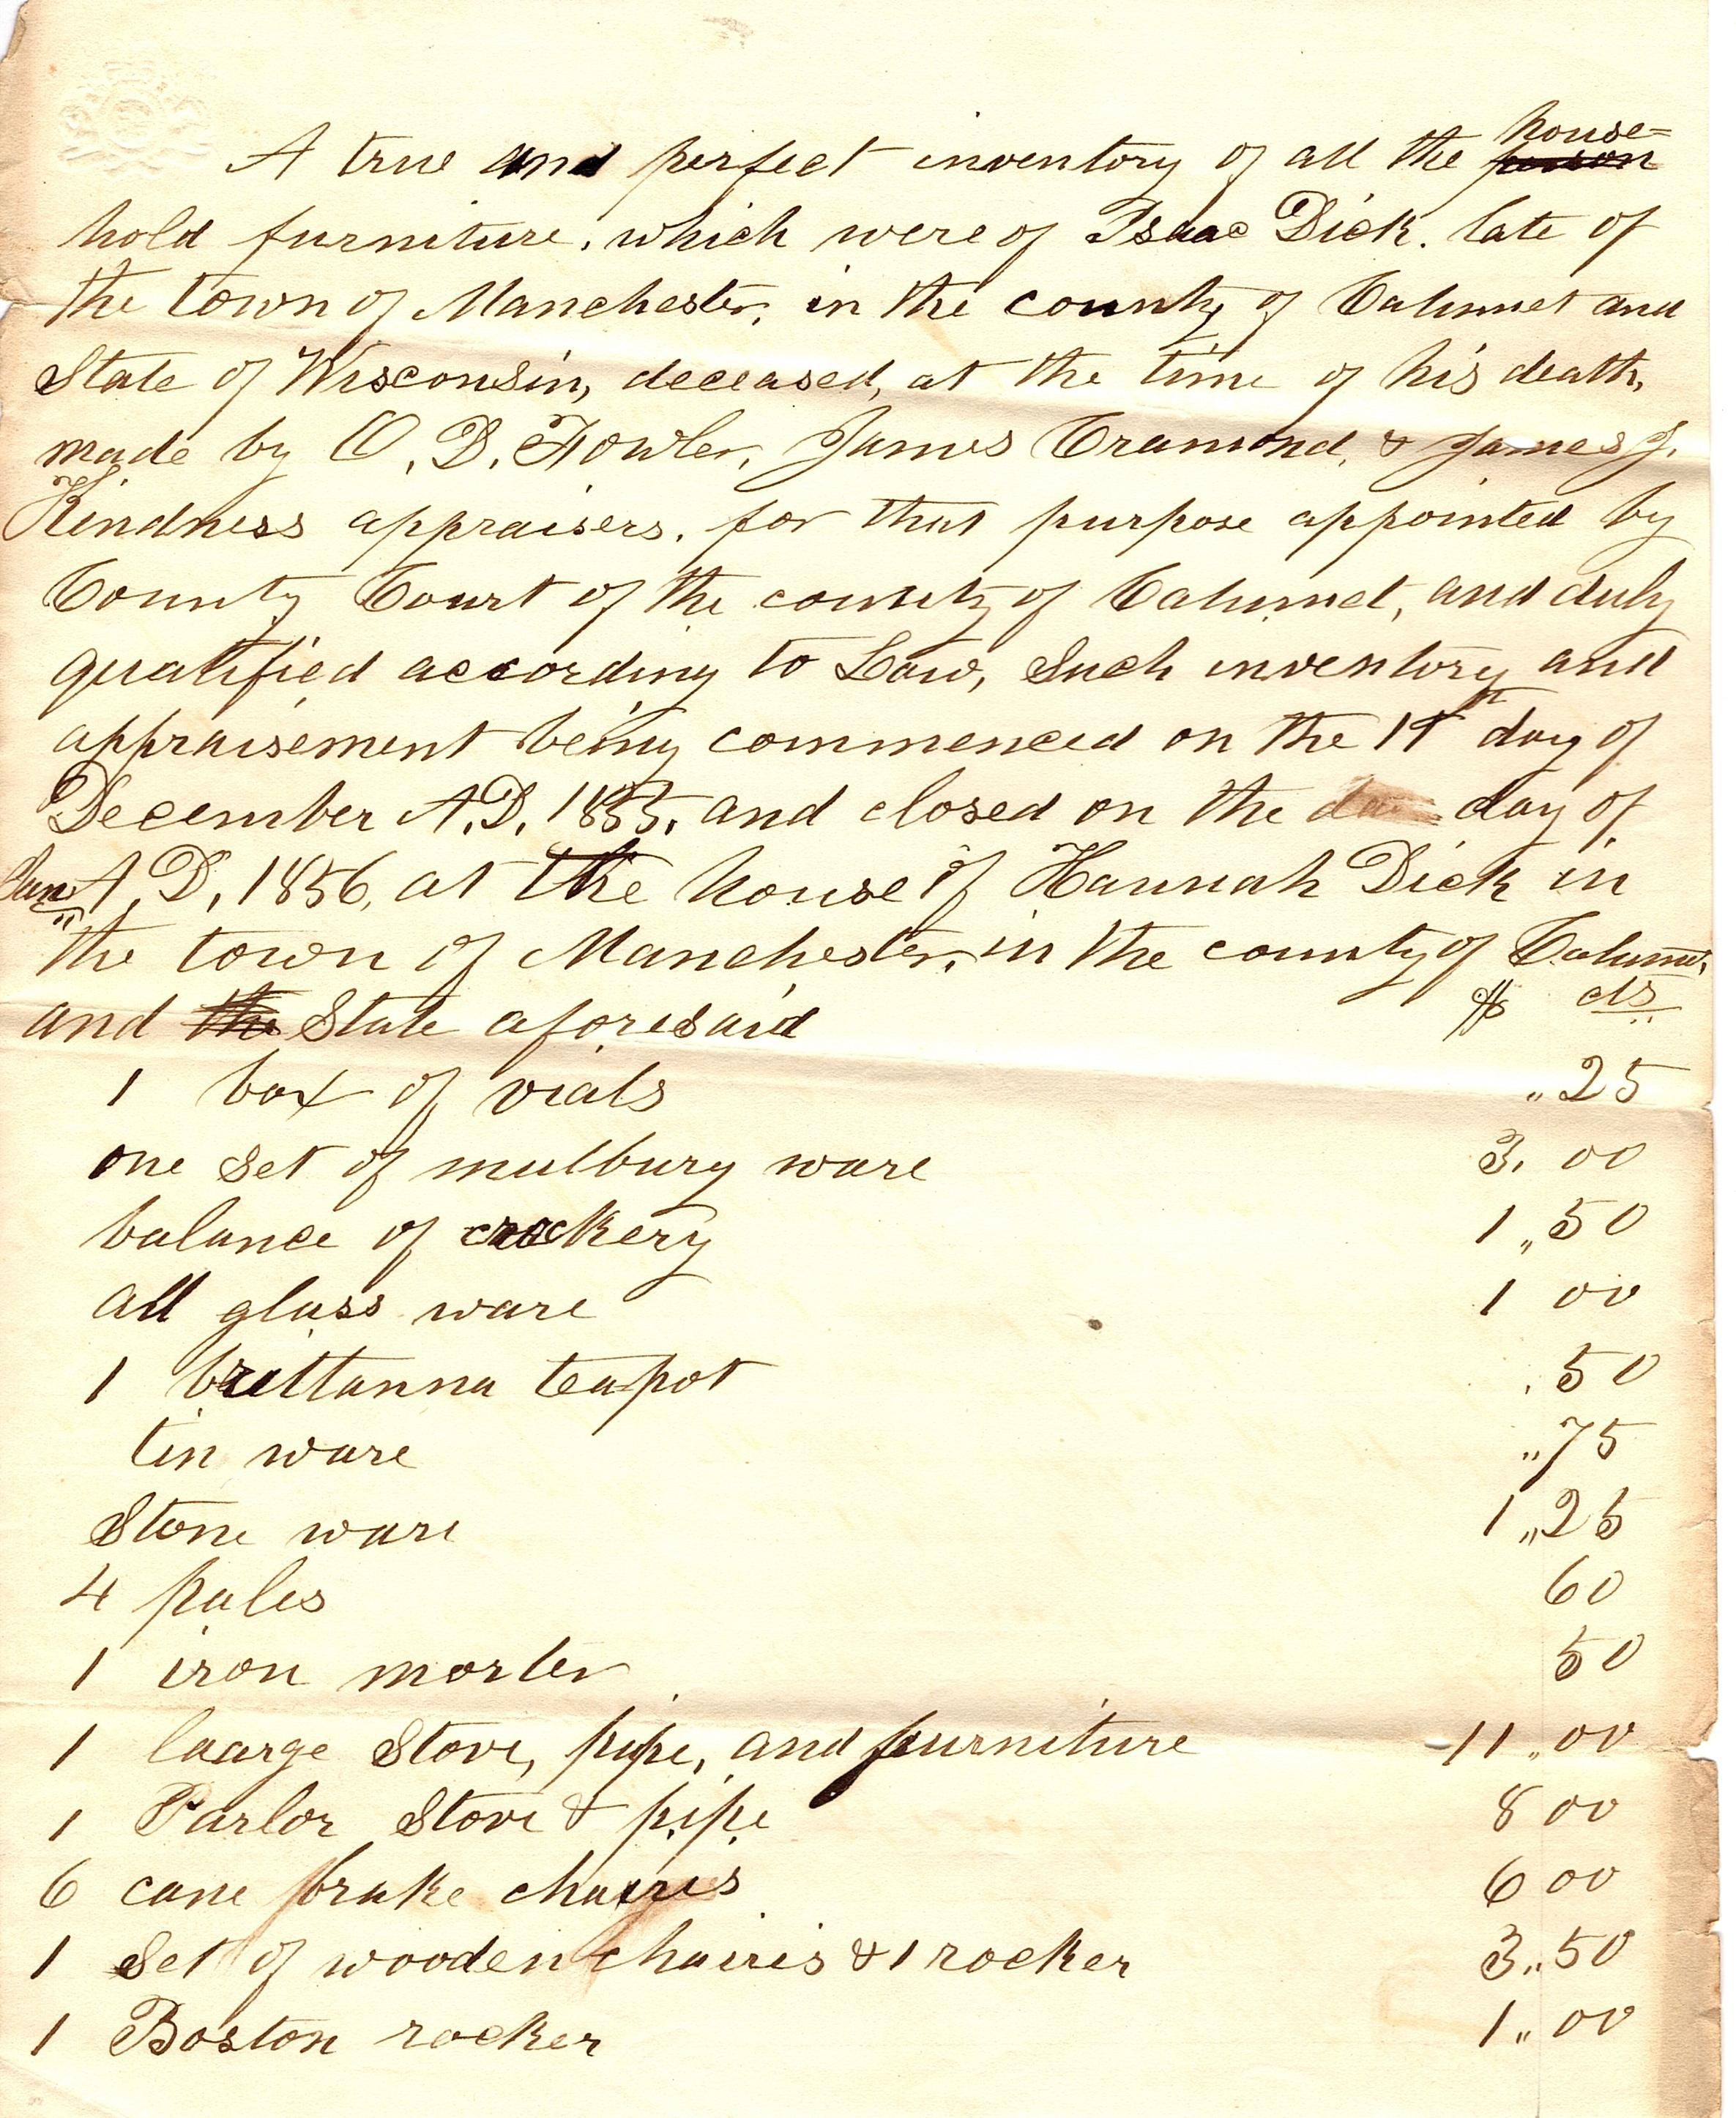 A true and perfect inventory of all the house=
hold furniture, which were of Isaac Dick. late of
the town of Manchester, in the county of Calumet and
State of Wisconsin, deceased, at the time of his death,
made by O. D. Fowler, James Cramond, & James J.
Kindness appraisers, for that purpose appointed by
County Court of the county of Calumet, and duly
qualified according to Law, Such inventory and
appraisement being commenced on the day of
December A.D. 1855, and closed on the day of
Jan A. D, 1856, at the house of Hannah Dick in
the town of Manchester, in the county of Calumet
and the State aforesaid $ cts
1 box of vials „25
one set of mulbury ware 3. 00
balance of crockery 1„50
all glass ware 1 00
1 brittanna teapot .50
tin ware „75
Stone ware 1„25
4 pales 60
1 iron morter 50
1 laarge Stove, pipe, and furniture 11„00
1 Parlor Stove & pipe 8 00
6 cane brake chairis 6 00
1 Set of wooden chairis & 1 rocker 3„50
1 Boston rocker 1„00